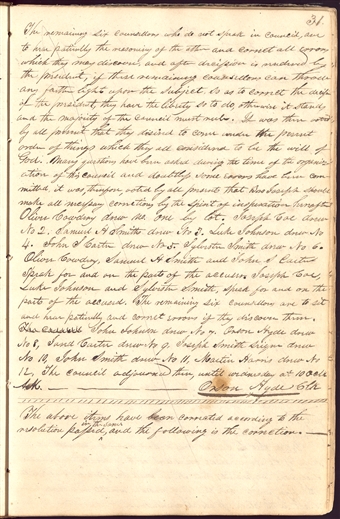 31.
The remaining six councellors who do not speak in council, are
to hear patiently the reasoning of the other and correct all errors
which they may discover, and after decision is rendered by
the president, if these remaining councellors can throw
any farther light upon the subject, so as to correct the decision
of the president, they have the liberty so to do, otherwise it stands,
and the majority of the council must rule. It was then voted
by all present that they desired to come under the present
order of things which they all considered to be the will of
God. Many questions have been asked during the time of the organiz-
ation of this council and doubtless some errors have been com-
mitted, it was therefore, voted by all present that Bro Joseph should
make all necessary corrections by the spirit of inspiration hereafter
Oliver Cowdery drew No. one by lot. Joseph Coe drew
No 2. Samuel H Smith drew No 3. Luke Johnson drew No
4. John S Carter drew No 5. Sylvester Smith drew No 6.
Oliver Cowdery, Samuel H Smith and John S Carter
speak for and on the parts of the accuser. Joseph Coe,
Luke Johnson and Sylvester Smith, speak for and on the
parts of the accused. The remaining six councellors are to sit
and hear patiently and correct errors if they discover them.
John Johnson drew No 7. Orson Hyde drew
No 8, Jared Carter drew No 9. Joseph Smith Senr drew
No 10, John Smith drew No 11, Martin Harris drew No
12, The council adjourned then until wednesday at 10 Oclk
Orson Hyde Clk
The above items have been corrected according to the
resolution passed, and the following is the correction.